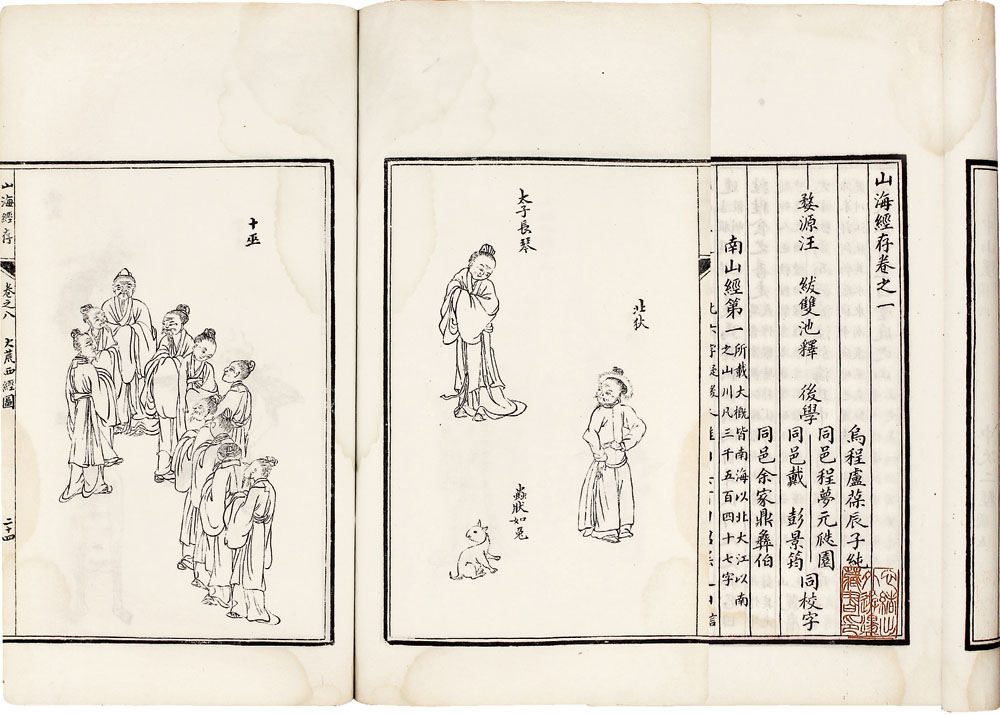 山海經存卷之一
烏程盧葆辰子純
婺源汪 紱雙池釋 後學 同邑程夢元 園 同校字
同邑戴 彭景筠
同邑余家鼎彝伯
南山經第一 所載大概皆南海以北大江以南
之山川凡三千五百四十七字
太子長琴
北狄
蟲狀如兔
十巫
山海經存
卷之八
大荒西經圖
二十四